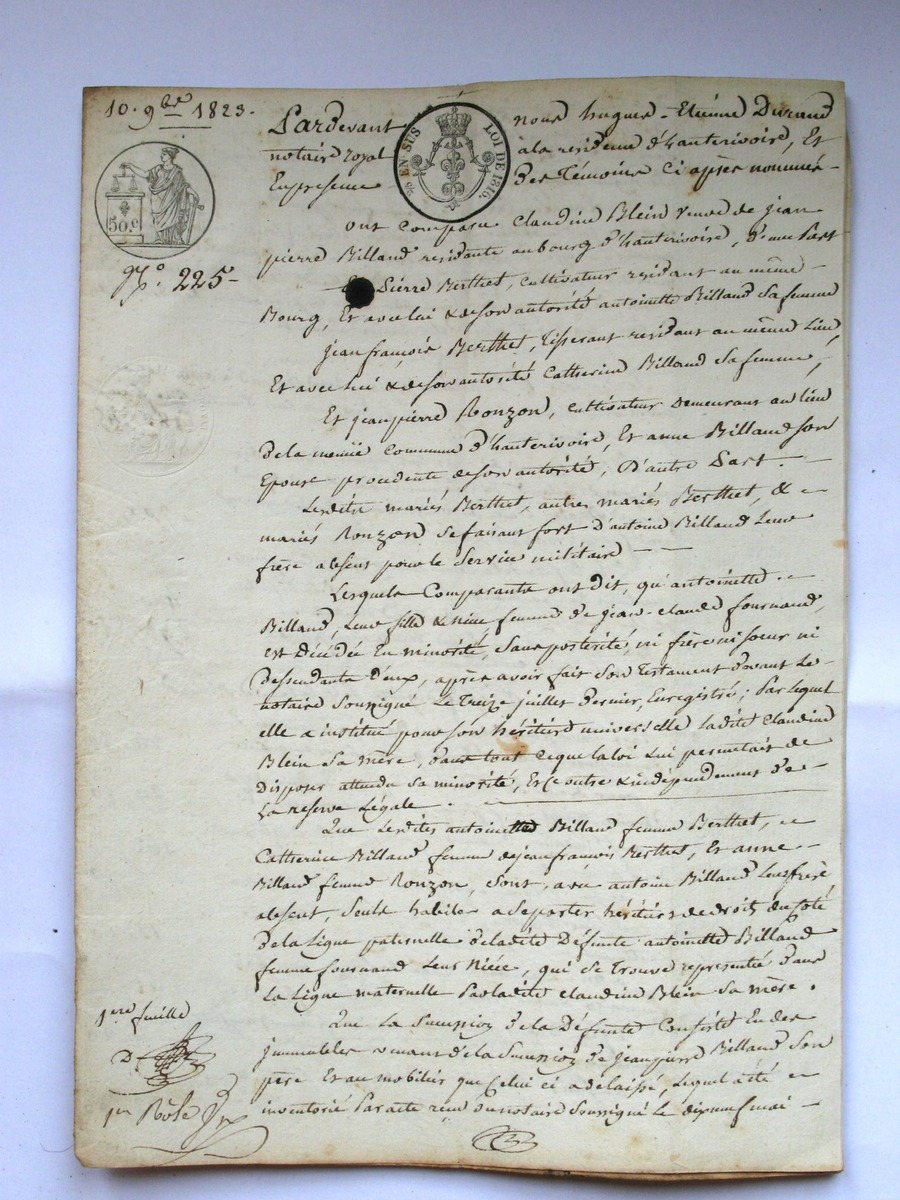 10. 9bre 1823.
50.c
N.o 225
EN SUS LOI DE 1816.
Pardevant nous hugues-Etienne Durand
notaire royal à la residence d'hauterivoire, Et
En presence Des Témoins Ci après nommés
ont comparu Claudine Blein veuve de jean
pierre Billaud residante au bourg d'hauterivoire, d'une Part
Pierre Berthet, cultivateur residant au même
Bourg, Et avec lui & de son autorité antoinette Billaud Sa femme
jean françois Berthet, tisserant residant au même Lieu,
Et avec lui & de son autorité Catherine Billaud Sa femme,
Et jean pierre Ronzon, cultivateur Demeurant au lieu
De la même Commune d'hauterivoire, Et anne Billaud son
Epouse procedente de son autorité, D'autre Part.
Lesdits mariés Berthet, autres mariés Berthet, &
mariés Ronzon Se faisant fort d'antoine Billaud Leur
frère absent pour le Service militaire
Lesquels Comparants ont Dit, qu'antoinette
Billaud, Leur fille & nièce femme de jean-claude fournaud,
est Décédée En minorité, Sans posterité, ni frère ni soeur ni
Descendants D'eux, après avoir fait Son Testament Devant Le
notaire Soussigné Le Treize juillet Dernier, Enregistré; Par Lequel
elle a institué pour son héritière universelle Ladite Claudine
Blein Sa mère, dans tout Ce que la loi Lui permettait de
Disposer attendu Sa minorité, Et Ce outre & indépendamment de
La reserve Légale.
Que Lesdites antoinette Billaud femme Berthet,
Catherine Billaud femme de jean françois Berthet, Et anne
Billaud femme Ronzon, Sont, avec antoine Billaud Leur frère
absent, Seuls habiles a Se porter héritiers de droit du Coté
De la Ligne paternelle de ladite Défunte antoinette Billaud
femme fournaud Leur Nièce, qui Se trouve representée Dans
La Ligne maternelle Par ladite Claudine Blein Sa mère.
Que La Succession De la Défunte Consiste En des
jmmeubles venant de la Succession de jean pierre Billaud Son
père Et au mobilier que Celui ci a delaissé, Lequel a été
inventorié Par acte reçu Du notaire Soussigné Le dix neuf mai
1ere feuille
D
1er Rôle